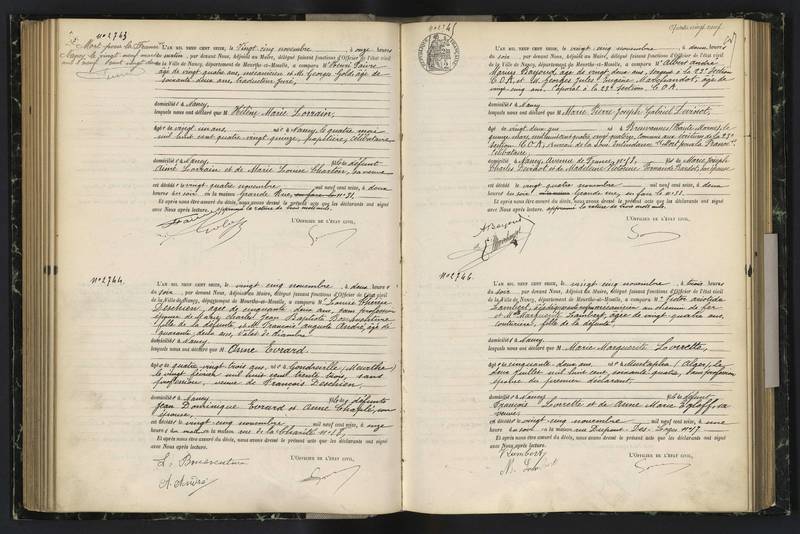 N° 2743
Mort pour la France
L'AN MIL NEUF CENT SEIZE, le Vingt cinq novembre, à onze heures
du matin, par devant Nous, Adjoint au Maire, délégué faisant fonctions d'Officier de l'état civil
de la Ville de Nancy, département de Meurthe-et-Moselle, a comparu M. Henri
âgé de vingt quatre ans, mécanicien et M. Georges âgé de
soixante deux ans, traducteur juré,
domiciliés à Nancy
lesquels nous ont déclaré que M. Hélène Marie Lorrain,
âgée de vingt un ans, née à Nancy, le quatre mai
mil huit cent quatre vingt quinze, papetière, célibataire
domiciliée à Nancy, fille de défunt
Anne Lorrain et de Marie Louise Charton, sa veuve
est décédée le vingt quatre novembre mil neuf cent seize, à deux
heures du soir, Grande Rue, en face le n° 31.
Et après nous être assuré du décès, nous avons dressé le présent acte que les déclarants ont signé
avec Nous après lecture. approuvé la rature de trois mots nuls.
L'OFFICIER DE L'ÉTAT CIVIL,
N° 2744.
L'AN MIL NEUF CENT SEIZE, le vingt cinq novembre, à deux heures
du soir, par devant Nous, Adjoint au Maire, délégué faisant fonctions d'Officier de l'état civil
de la Ville de Nancy, département de Meurthe-et-Moselle, a comparu M. Louise Thérèse
Deschien, âgée de cinquante deux ans, sans profession
épouse de Charles Jean Baptiste Bonaventure
fille de la défunte, et M. François Auguste André, âgé de
quarante deux ans,
domiciliés à Nancy
lesquels nous ont déclaré que M. Anne Evrard.
âgée de quatre vingt trois ans, née à Gondreville (Meurthe)
le vingt février mil huit cent trente trois, sans
profession, veuve de François Deschien,
domiciliée à Nancy, fille des défunts
Jean Dominique Evrard et Anne
épouse,
est décédée le vingt cinq novembre mil neuf cent seize, à onze
heures du matin en la maison rue de la Charité n° 18,
Et après nous être assuré du décès, nous avons dressé le présent acte que les déclarants ont signé
avec Nous après lecture.
L'OFFICIER DE L'ÉTAT CIVIL,
L. Bonaventure
A. André
N° 2745
Quatre vingt neuf
L'AN MIL NEUF CENT SEIZE, le vingt cinq novembre, à deux heures
du soir, par devant Nous, Adjoint au Maire, délégué faisant fonctions d'Officier de l'état civil
de la Ville de Nancy, département de Meurthe-et-Moselle, a comparu M. Albert André
âgé de vingt deux ans, sergent à la 23e Section
C.O.A. et M. Jules Eugène Marchandot, âgé de
vingt cinq ans, Caporal à la 23e section C.O.A.
domiciliés à Nancy
lesquels nous ont déclaré que M. Marie Pierre Joseph Gabriel
âgé de vingt deux ans, né à Brouvannes (Haute Marne), le
quinze mars mil huit cent quatre vingt quatorze, commis aux écritures de la 23e
section C.O.A. Mort pour la France
célibataire,
domicilié à Nancy, Avenue de France n° 58, fils de Marie Joseph
Charles et de Madeleine Victorine Fernande Bardot, son épouse
est décédé le vingt quatre novembre mil neuf cent seize, à deux
heures du soir, Grande rue, en face le n° 31.
Et après nous être assuré du décès, nous avons dressé le présent acte que les déclarants ont signé
avec Nous après lecture. approuvé la rature de trois mots nuls.
L'OFFICIER DE L'ÉTAT CIVIL,
N° 2746.
L'AN MIL NEUF CENT SEIZE, le vingt cinq novembre, à trois heures
du soir, par devant Nous, Adjoint au Maire, délégué faisant fonctions d'Officier de l'état civil
de la Ville de Nancy, département de Meurthe-et-Moselle, a comparu M. Aristide
Lambert, âgé de chemin de fer
et Mlle Marguerite Lambert, âgée de vingt quatre ans
couturière, fille de la défunte
domiciliés à Nancy
lesquels nous ont déclaré que M. Marie Marguerite Lorrette,
âgée de cinquante deux ans, née à Mustapha (Alger), le
deux juillet mil huit cent soixante quatre, sans profession
épouse du premier déclarant,
domiciliée à Nancy, fille de défunt
François Lorrette et de Anne Marie Egloff, sa
veuve,
est décédée le vingt cinq novembre mil neuf cent seize, à une
heure du soir en la maison rue Dupont-Des-Loges n° 17.
Et après nous être assuré du décès, nous avons dressé le présent acte que les déclarants ont signé
avec Nous après lecture.
L'OFFICIER DE L'ÉTAT CIVIL,